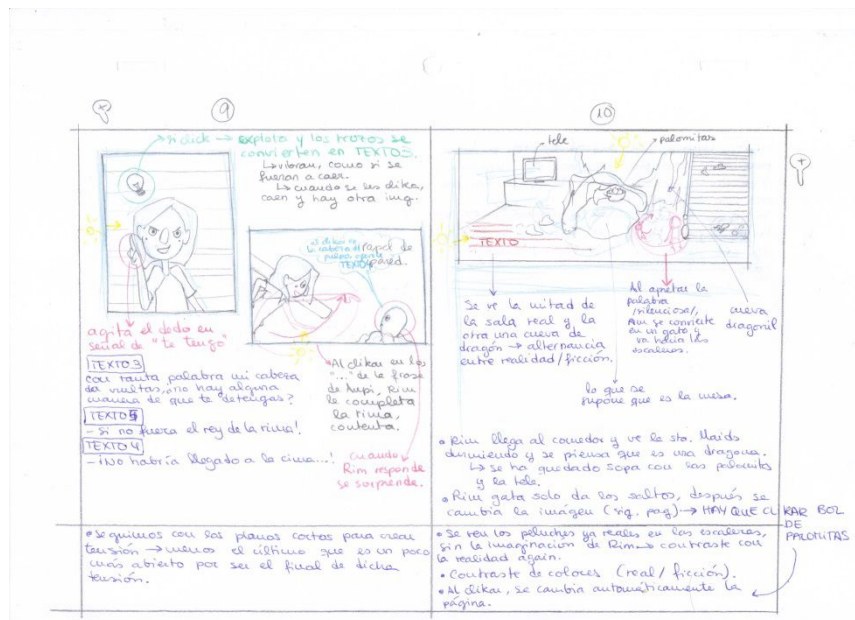 9
si click → explota y los trozos se
convierten en TEXTO 3.
↳ vibran, como si se
fueran a caer.
↳ cuando se les clika,
caen y hay otra img.
al clikar en
la cabeza
TEXTO 4
papel de
pared.
agita el dedo en
señal de "te tengo"
TEXTO 3
con tanta palabra mi cabeza
da vueltas, ¿no hay alguna
manera de que te detengas?
TEXTO 5
- si no fuera el rey de la rima!
TEXTO 4
- ¡No habría llegado a la cima...!
Al clikar en los
"..." de la frase
de Lupi, Rim
le completa
la rima,
contenta.
cuando
Rim responde
se sorprende.
• seguimos con los planos cortos para crear
tensión → menos el último que es un poco
más abierto por ser el final de dicha
tensión.
10
tele
palomitas
TEXTO
Se ve la mitad de
la sala real y la
otra una cueva de
dragón → alternancia
entre realidad/ficción.
Al apretar la
palabra
/silenciosa/,
se convierte
en un gato y
va hacia las
escaleras.
cueva
dragonil
lo que se
supone que es la mesa.
• Rim llega al comedor y ve la sta. Maids
durmiendo y se piensa que es una dragona.
↳ se ha quedado sopa con las palomitas
y la tele.
• Rim gata solo da los saltos, después se
cambia la imágen (sig. pag) → HAY QUE CL RAR BOL
DE
PALOMITAS
• Se ven los peluches ya reales en las escaleras,
sin la imaginación de Rim → contraste con
la realidad again.
• Contraste de colores (real / ficción).
• Al clikar, se cambia automáticamente la
página.